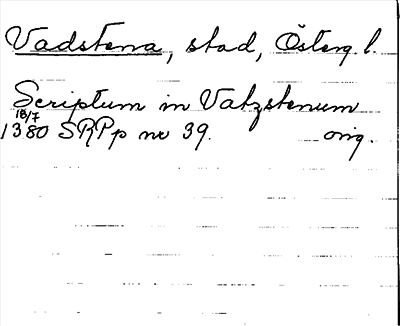 Vadstena, stad, Österg. l.
Scriptum in Vatzstenum
18/7
1380 SRPp nr 39. orig.